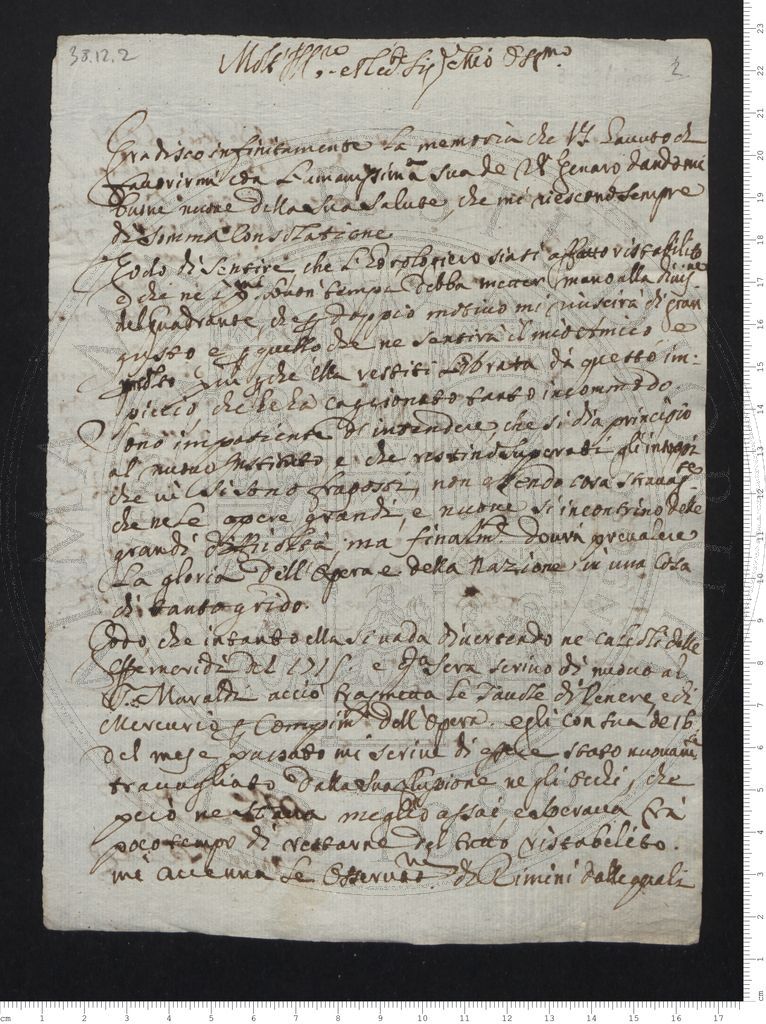 38.12.2
2
Gradisco infinitamente la memoria che VS havuto di
favorirmi con l'umanissima sua de 28 Genaro dandomi
buone nuove della sua salute, che mi riescono sempre
di somma Consolatione
Godo di sentire che l'Horologiero siasi affatto ristabilito
e che ne i buon tempi debba metter mano alla
del Quadrante, che doppio motivo mi riuscirà di gran
gusto e quello che ne sentirà il mio Amico e
molto che ella resti liberata da questo im:
piccio che le ha cagionato tanto incommodo.
Sono impatiente d'intendere, che si dia principio
al nuovo Instituto e che restino superati gli intoppi
che vi si sono fraposti, non essendo cosa
che ne le opere grandi, e nuove si incontrino delle
grandi difficoltà, ma finalmte dovrà prevalere
la gloria dell'opera e della Nazione in una cosa
di tanto grido.
Godo, che intanto ella si vada divertendo ne calcoli delle
Effemeridi del 1715. e sera scrivo di nuovo al
S. Maraldi acciò trasmetta le Tavole di Venere, e di
Mercurio p Compimto dell'Opera. egli con sua de 16
del mese passato mi scrive di essere stato nuovamte
travagliato dalla sua flussione ne gli occhi, che
però ne stava meglio assai e sperava frà
poco tempo di restarne del tutto ristabilito.
mi accenna le osservni di Rimini dalle quali